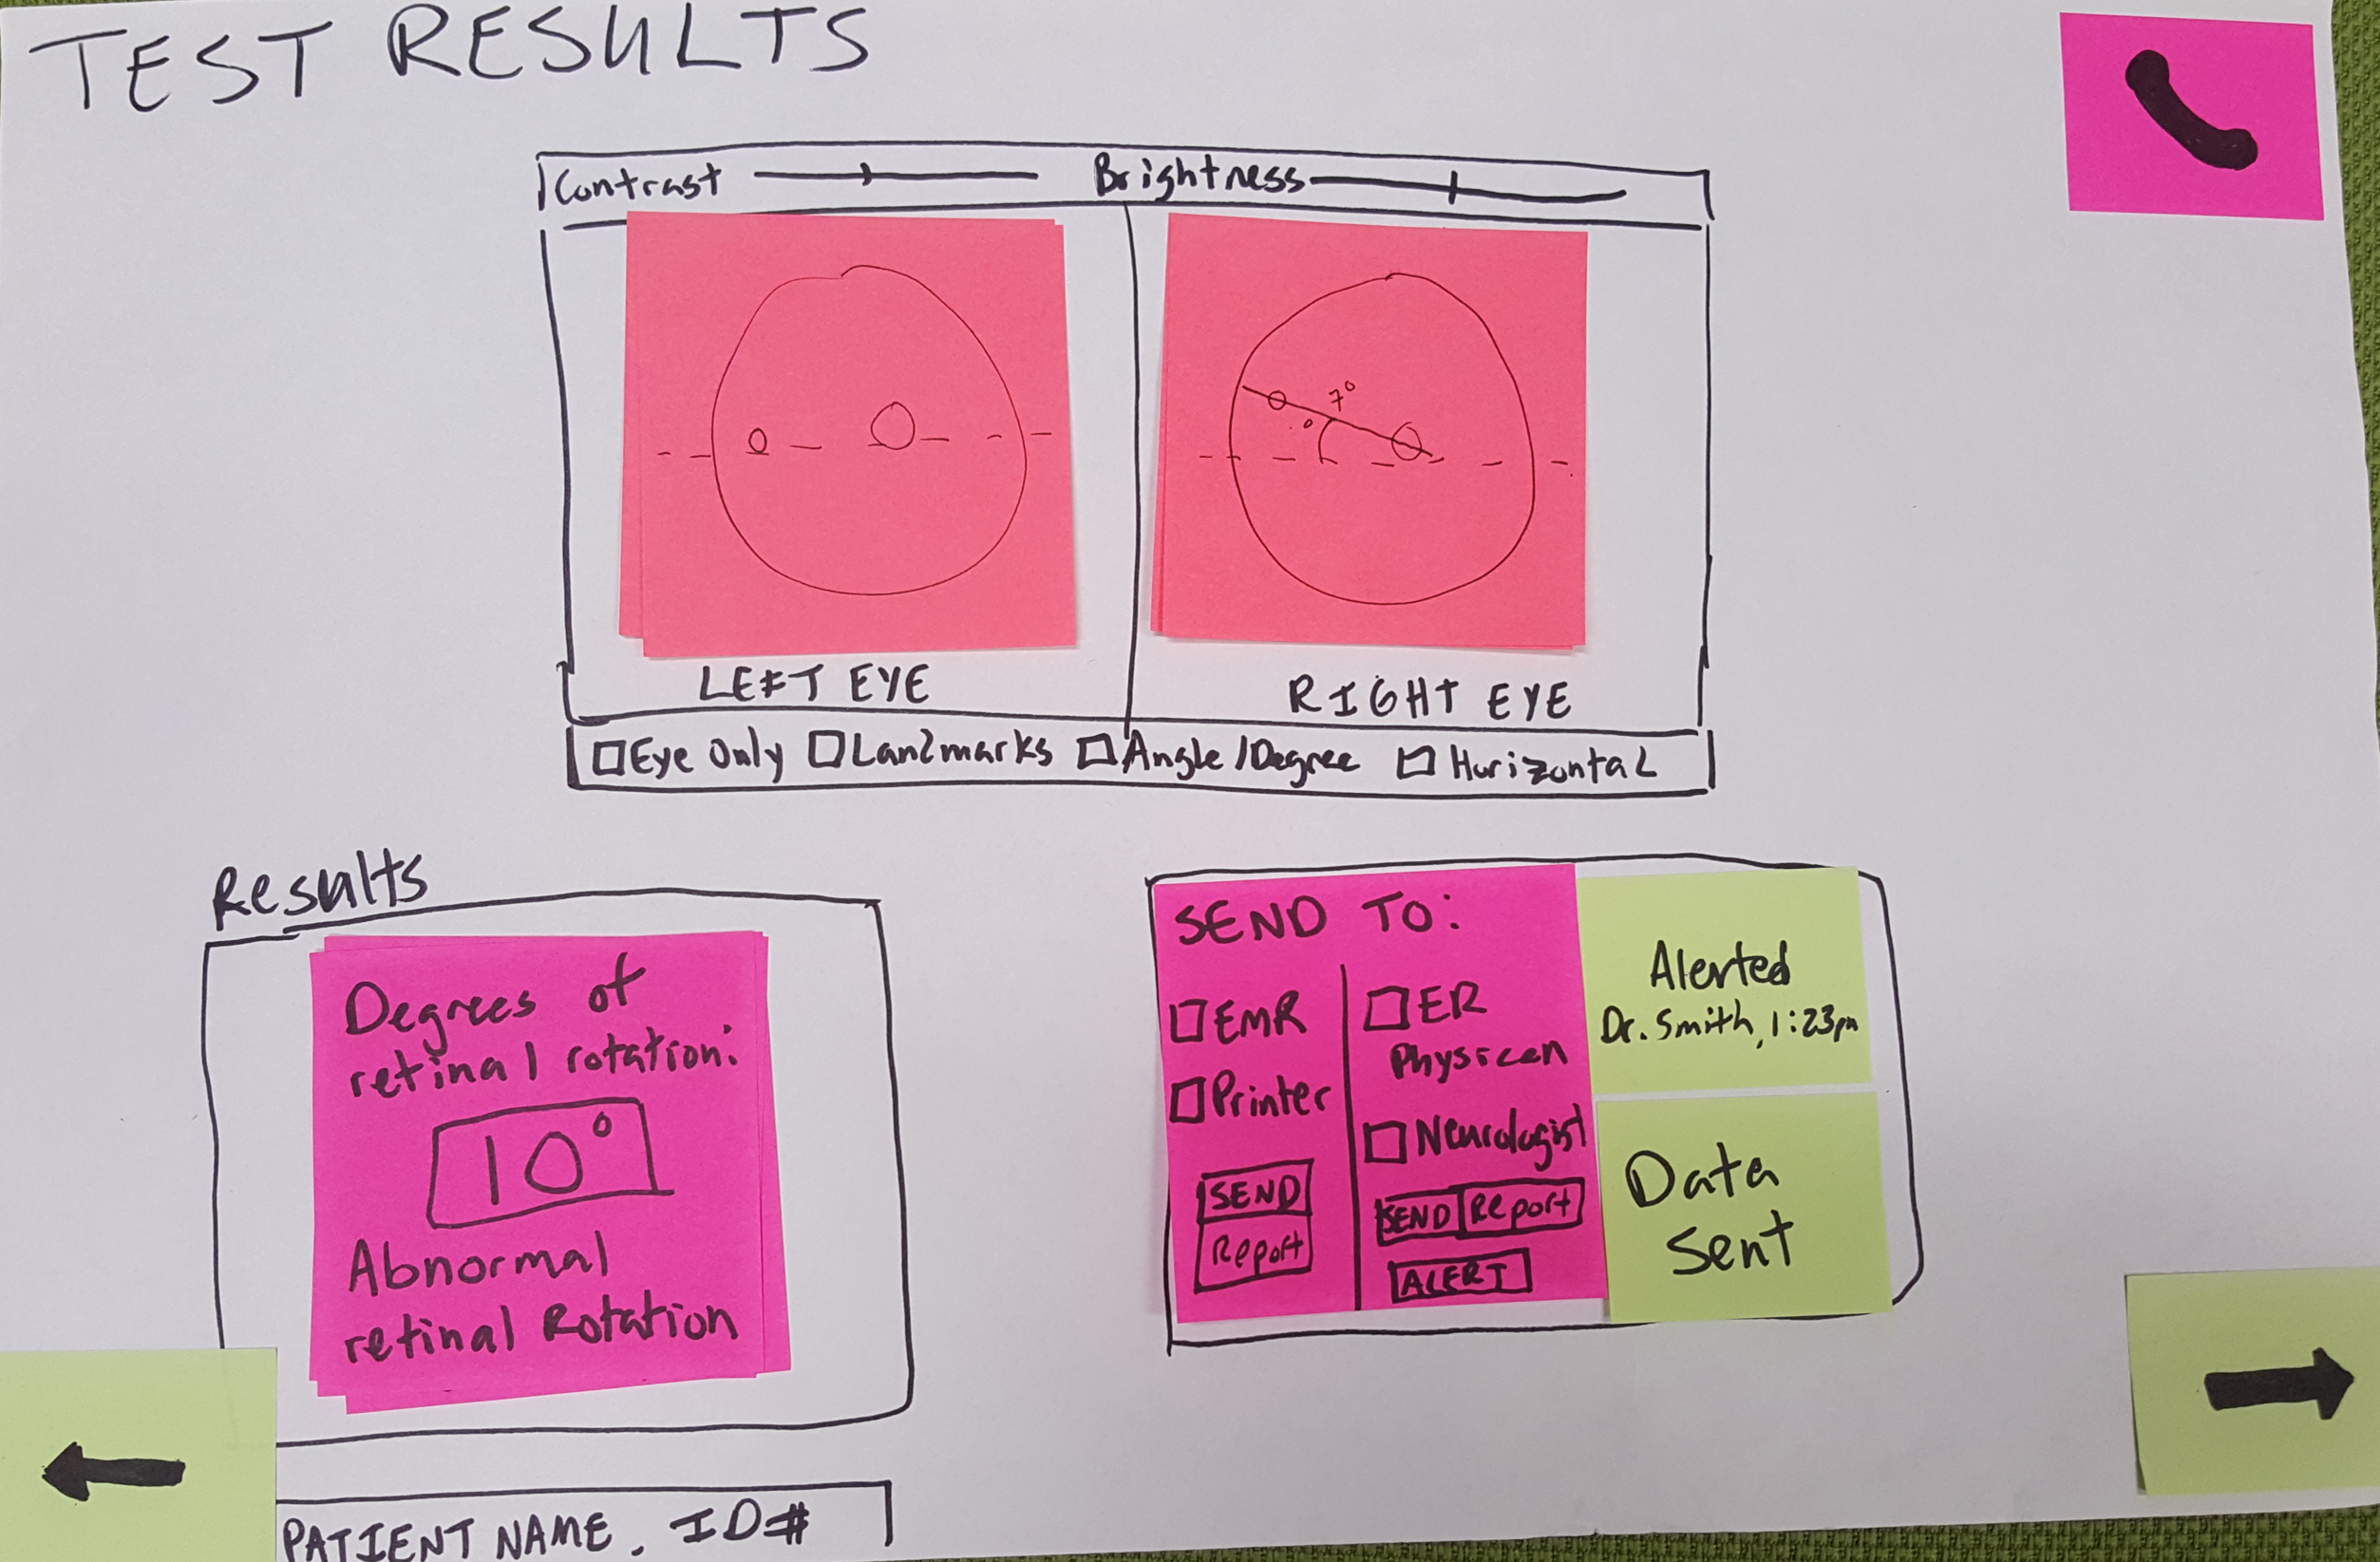 TEST RESULTS
Contrast
Brightness
7°
LEFT EYE
RIGHT EYE
Eye Only
Landmarks
Angle/Degree
Horizontal
Results
Degrees of
retinal rotation:
10°
Abnormal
retinal Rotation
SEND TO:
EMR
Printer
SEND
Report
ER
Physican
Neurologist
SEND Report
ALERT
Alerted
Dr. Smith, 1:23pm
Data
Sent
PATIENT NAME. ID#